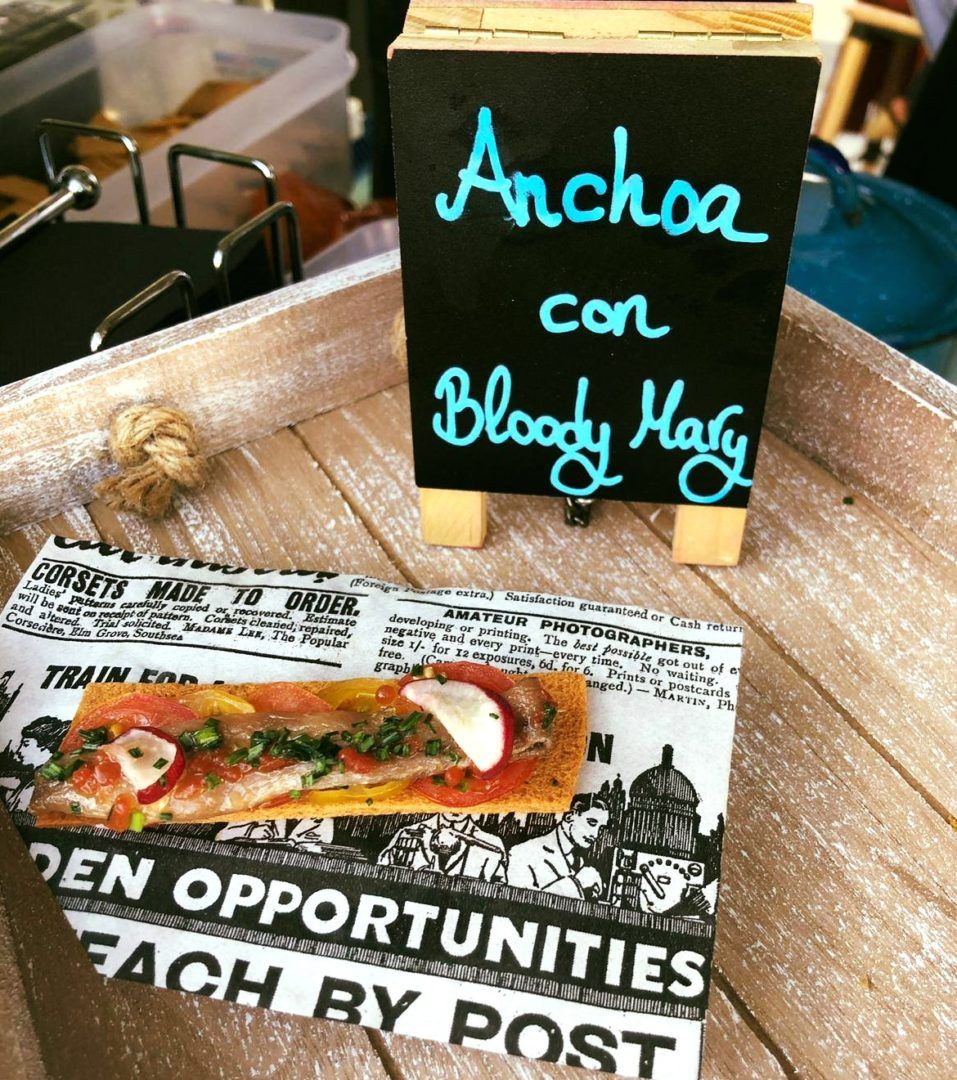 Anchoa
con
Bloody Mary
CORSETS MADE TO ORDER.
Ladies' patterns carefully copied or recovered. Estimate
will be sent on receipt of pattern. Corsets cleaned, repaired,
and altered. Trial solicited. MADAME LEE, The Popular
Corsetière, Elm Grove, Southsea
(Foreign extra.) Satisfaction guaranteed or Cash return
AMATEUR PHOTOGRAPHERS,
developing or printing. The best possible got out of
negative and every print—every time. No waiting.
size 1/- for 12 exposures, 6d. for 6. Prints or postcards
free. — MARTIN,
TRAIN FOR
DEN OPPORTUNITIES
EACH BY POST